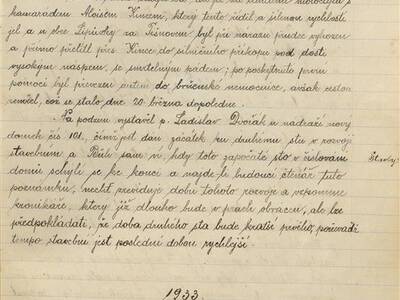 kamarádem Aloisem Kincem, který tento řídil a šílenou rychlostí
jel a u obce Lipůvky za Tišnovem byl při nárazu prudce vyhozen
a přímo přeletěl přes Kince do silničního příkopu pod dosti
vysokým náspem, se smrtelným pádem; po poskytnutí první
pomoci byl převezen autem do brněnské nemocnice, avšak cestou
zemřel, což se stalo dne 20 března dopoledne.
Na podzim vystavěl p. Ladislav Dvořák u nádraží nový
domek čís 101, čímž jest dán začátek ku druhému stu v rozvoji
stavebním a Bůh sám ví, kdy toto započaté sto v číslování
Stavby:
domů schýlí se ke konci a najde-li budoucí čtenář tuto
poznámku, nechť přivoduje dobu tohoto rozvoje a vzpomene
kronikáře, který již dlouho bude v prach obrácen, ale lze
předpokládati, že doba druhého sta bude kratší prvého, poněvadž
tempo stavební jest poslední dobou rychlejší.
1933.